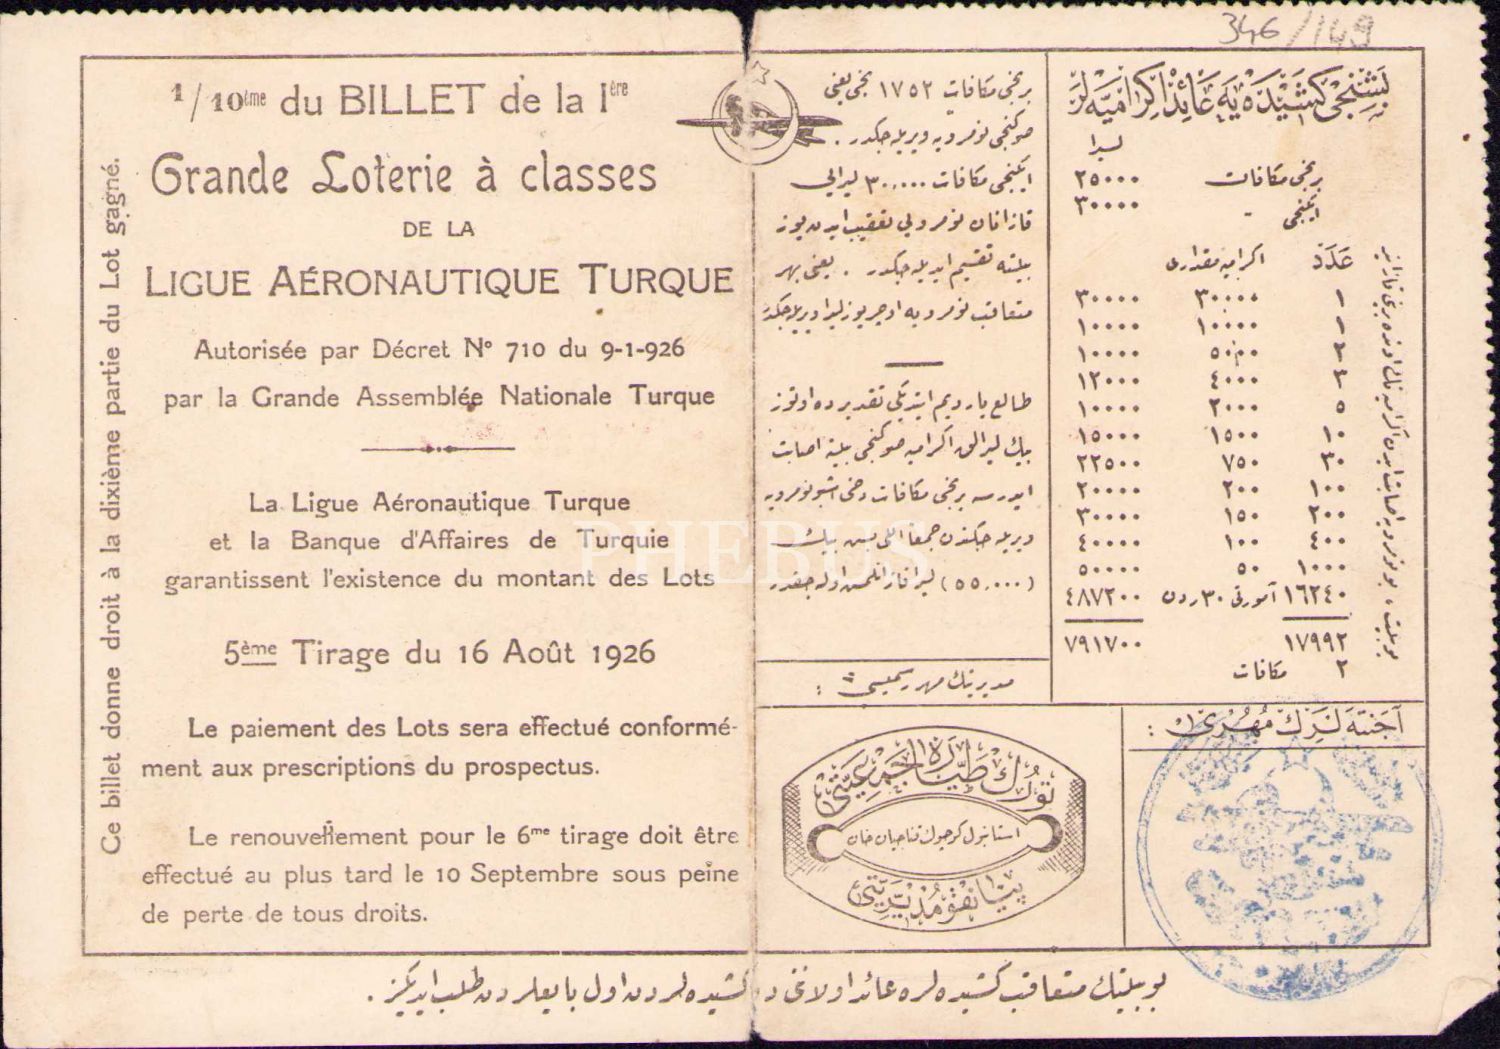 346/149
1/10ème du BILLET de la Ière
Grande Loterie à classes
DE LA
LIGUE AÉRONAUTIQUE TURQUE
Autorisée par Décret No 710 du 9-1-926
par la Grande Assemblée Nationale Turque
La Ligue Aéronautique Turque
et la Banque d'Affaires de Turquie
garantissent l'existence du montant des Lots
5ème Tirage du 16 Août 1926
Le paiement des Lots sera effectué conformé-
ment aux prescriptions du prospectus.
Le renouvellement pour le 6me tirage doit être
effectué au plus tard le 10 Septembre sous peine
de perte de tous droits.
Ce billet donne droit à la dixième partie du Lot gagné.
برنجی مكافات ١٧٥٢ نجی یعنی
صوكنجی نومرویه ویریله جكدر .
ایكنجی مكافات ٣٠,٠٠٠ لیرالی
قازانان نومرویی تعقیب ایدن یوز
بیلته تقسیم ایدیله جكدر . یعنی بهر
متعاقب نومرویه اوچر یوز لیرا ویریله جكدر
طالع یاردیم ایتدیكی تقدیرده اوتوز
بیك لیرالق اكرامیه صوكنجی بیلته اصابت
ایدرسه برنجی مكافات دخی اشبو نومرویه
ویریله جكندن جمعا اللی بش بیك
(٥٥,٠٠٠) لیرا قازانلمش اوله جقدر
بشنجی كشیده یه عائد اكرامیه لر
لیرا
برنجی مكافات ٢٥٠٠٠
ایكنجی - ٣٠٠٠٠
عدد اكرامیه مقداری
١ ٣٠٠٠٠ ٣٠٠٠٠
١ ١٠٠٠٠ ١٠٠٠٠
٢ ٥٠٠٠ ١٠٠٠٠
٣ ٤٠٠٠ ١٢٠٠٠
٥ ٢٠٠٠ ١٠٠٠٠
١٠ ١٥٠٠ ١٥٠٠٠
٣٠ ٧٥٠ ٢٢٥٠٠
١٠٠ ٢٠٠ ٢٠٠٠٠
٢٠٠ ١٥٠ ٣٠٠٠٠
٤٠٠ ١٠٠ ٤٠٠٠٠
١٠٠٠ ٥٠ ٥٠٠٠٠
١٦٢٤٠ آمورتی ٣٠ ردن ٤٨٧٢٠٠
١٧٩٩٢ ٧٩١٧٠٠
٢ مكافات
مدیریتك مهر رسمیسی :
تورك طیاره جمعیتی
استانبول كوچوك قناجیان خان
پیانقو مدیریتی
آجنته لرك مهری :
بو بیلتك متعاقب كشیده لره عائد اولاننی كشیده لردن اول بایعلردن طلب ایدیكز .
PHEBUS